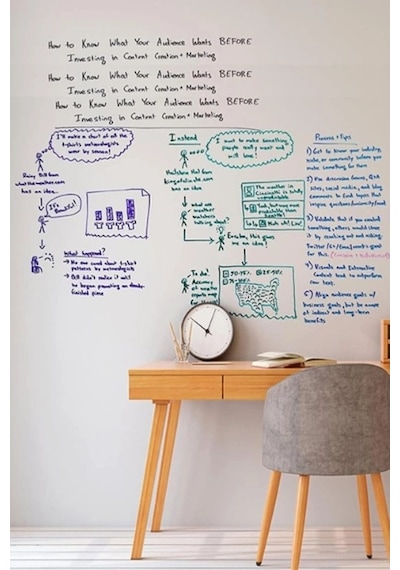 How to Know What Your Audience Wants BEFORE
Investing in Content Creation + Marketing
How to Know What Your Audience Wants BEFORE
Investing in Content Creation + Marketing
How to Know What Your Audience Wants BEFORE
Investing in Content Creation + Marketing
I'll make a chart of all the
t-shirts meteorologists
wear by season!
Rainy Bill from
whattheweather.com
has an idea...
It's Beautiful!
What happened?
→ No one cared about t-shirt
patterns by meteorologists
→ Bill didn't realize it until
he began promoting an already-
finished piece
Instead
I want to make something
people really want and
will love!
Hailstorm Hal from
has an idea
what are
weather
watchers
talking about?
The weather in
Cincinnati is totally
unpredictable
Eureka, this gives
me an idea!
To do!
Accuracy
of weather
reports map
for
Process + Tips
1) Get to know your industry,
niche, or community before you
make something for them
2) Use discussion forums, Q+A
sites, social media, and blog
comments to find topics that
inspire questions/curiosity/need
3) Validate that if you content
something, others would share
it by
Twitter/G+/Email
for this.
4) Visuals and Interactive
Content tend to outperform
raw text.
5) Align audience goals w/
business goals, but be aware
of indirect and long-term
benefits